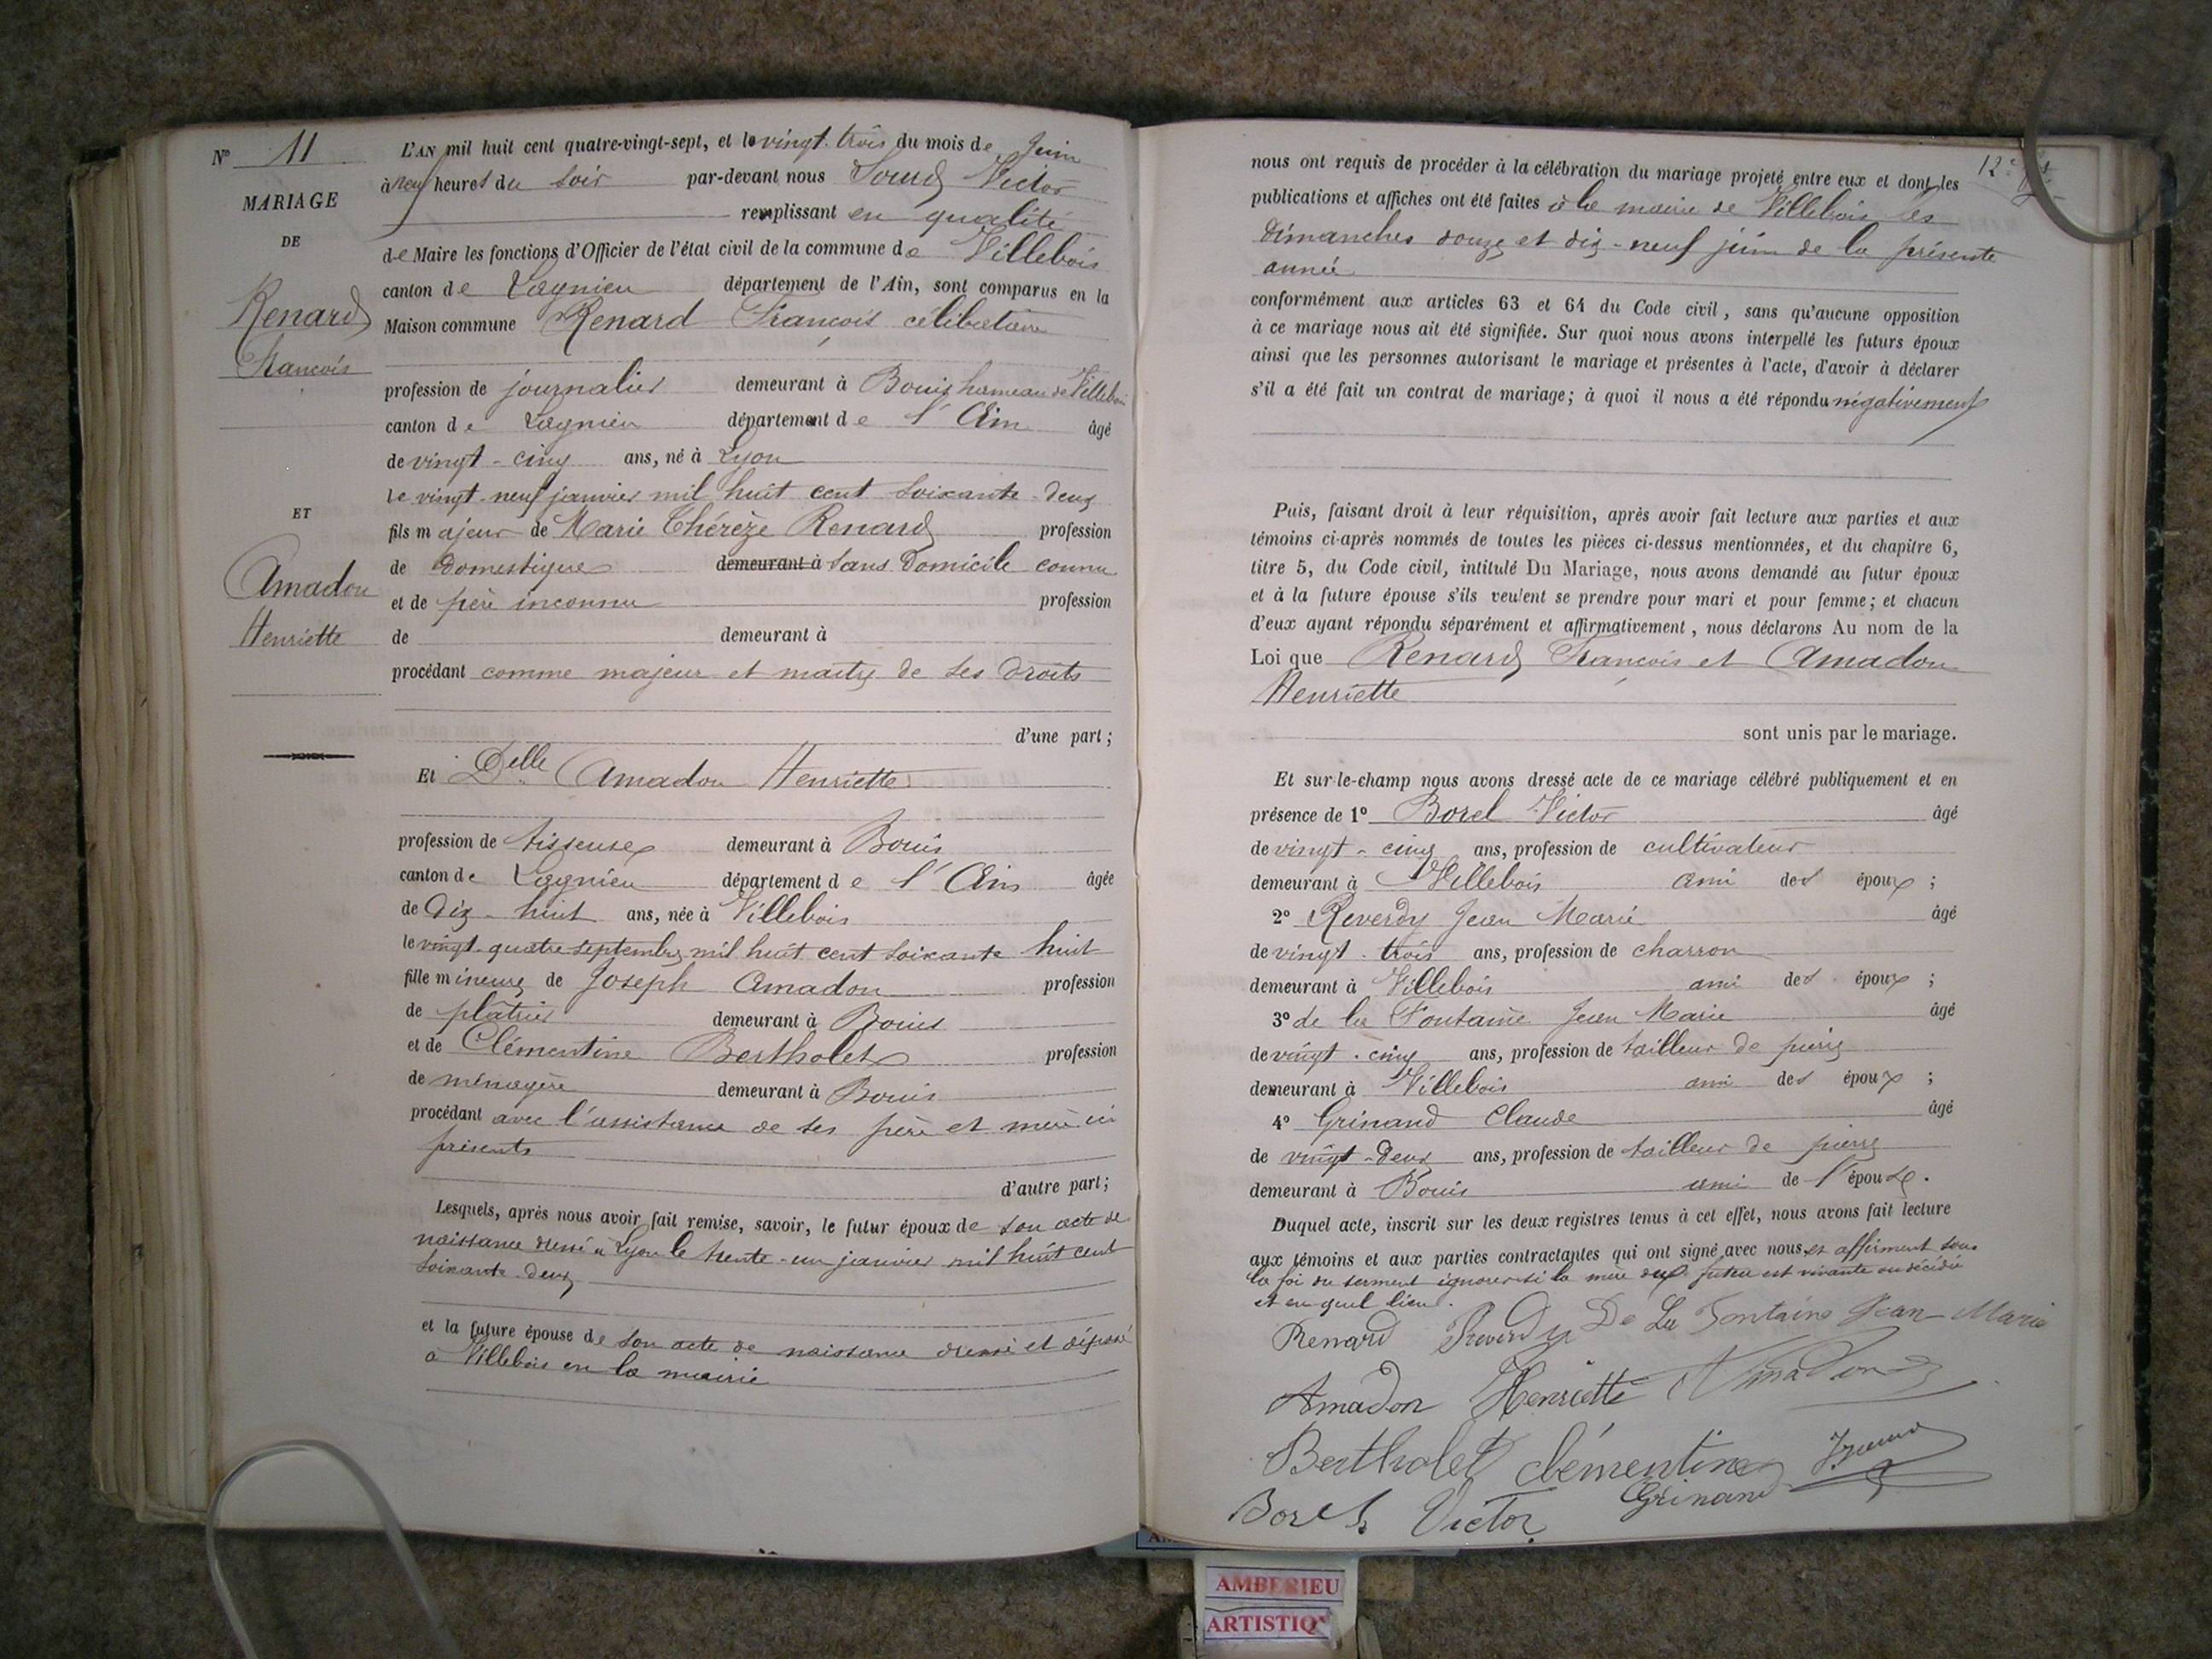 N° 11
MARIAGE
DE
Renard
François
ET
Amadon
Henriette
L'AN mil huit cent quatre-vingt-sept, et le vingt-trois du mois de Juin
à neuf heures du soir par-devant nous Victor
remplissant en qualité
de Maire les fonctions d'Officier de l'état civil de la commune de Villebois
canton de Lagnieu département de l'Ain, sont comparus en la
Maison commune Renard François célibataire
profession de journalier demeurant à Bouis hameau de Villebois
canton de Lagnieu département de l'Ain âgé
de vingt-cinq ans, né à Lyon
le vingt-neuf janvier mil huit cent soixante-deux
fils majeur de Marie Thérèze Renard profession
de domestique demeurant à sans domicile connu
et de père inconnu profession
de demeurant à
procédant comme majeur et maitre de ses droits
d'une part;
Et Delle Amadon Henriette
profession de tisseuse demeurant à Bouis
canton de Lagnieu département de l'Ain âgée
de dix-huit ans, née à Villebois
le vingt-quatre septembre mil huit cent soixante-huit
fille mineure de Joseph Amadon profession
de plâtrier demeurant à Bouis
et de Clémentine Bertholet profession
de ménagère demeurant à Bouis
procédant avec l'assistance de ses père et mère ici
présents
d'autre part;
Lesquels, après nous avoir fait remise, savoir, le futur époux de son acte de
naissance dressé à Lyon le trente-un janvier mil huit cent
soixante-deux
et la future épouse de son acte de naissance dressé et déposé
à Villebois en la mairie
12e
nous ont requis de procéder à la célébration du mariage projeté entre eux et dont les
publications et affiches ont été faites à la mairie de Villebois les
dimanches douze et dix-neuf juin de la présente
année
conformément aux articles 63 et 64 du Code civil, sans qu'aucune opposition
à ce mariage nous ait été signifiée. Sur quoi nous avons interpellé les futurs époux
ainsi que les personnes autorisant le mariage et présentes à l'acte, d'avoir à déclarer
s'il a été fait un contrat de mariage; à quoi il nous a été répondu négativement
Puis, faisant droit à leur réquisition, après avoir fait lecture aux parties et aux
témoins ci-après nommés de toutes les pièces ci-dessus mentionnées, et du chapitre 6,
titre 5, du Code civil, intitulé Du Mariage, nous avons demandé au futur époux
et à la future épouse s'ils veulent se prendre pour mari et pour femme; et chacun
d'eux ayant répondu séparément et affirmativement, nous déclarons Au nom de la
Loi que Renard François et Amadon
Henriette
sont unis par le mariage.
Et sur-le-champ nous avons dressé acte de ce mariage célébré publiquement et en
présence de 1° Borel Victor âgé
de vingt-cinq ans, profession de cultivateur
demeurant à Villebois ami des époux;
2° Reverdy Jean Marie âgé
de vingt-trois ans, profession de charron
demeurant à Villebois ami des époux;
3° de la Fontaine Jean Marie âgé
de vingt-cinq ans, profession de tailleur de pierre
demeurant à Villebois ami des époux;
4° Grinand Claude âgé
de vingt-deux ans, profession de tailleur de pierre
demeurant à Bouis ami de l'épouse.
Duquel acte, inscrit sur les deux registres tenus à cet effet, nous avons fait lecture
aux témoins et aux parties contractantes qui ont signé avec nous et affirment sous
la foi du serment ignorer si la mère du futur est vivante ou décédée
et en quel lieu.
Renard Reverdy De La Fontaine Jean Marie
Amadon Henriette Amadon
Bertholet Clémentine
Grinand
Borel Victor
AMBERIEU
ARTISTIQ